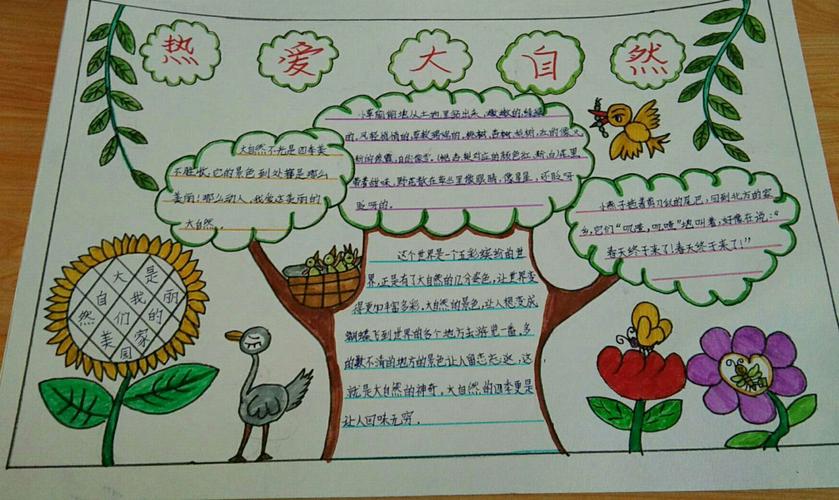 热爱大自然
大自然不光是四季美
不胜收,它的景色到处都是那么
美丽!那么动人,我爱这美丽的
大自然。
小草偷偷地从土地里钻出头,嫩嫩的绿绿
的,风轻悄悄的,草软绵绵的,桃树、杏树、梨树,红的像火
粉的像霞,白的像雪。(桃杏梨对应的颜色红、粉、白)花里
带着甜味,野花散在草丛里像眼睛,像星星,还眨呀
眨呀的。
小燕子拖着剪刀似的尾巴,回到北方的家
乡,它们“叽喳,叽喳”地叫着,好像在说:“
春天终于来了!春天终于来了!”
这个世界是一个五彩缤纷的世
界,正是有了大自然的几分姿色,让世界变
得更加丰富多彩,大自然的景色,让人想变成
蝴蝶飞到世界的各个地方去游览一番,多
的数不清的地方的景色让人留恋,这
就是大自然的神奇,大自然的四季更是
让人回味无穷。
大 是
自 我 丽
然 们 的
美 国 家